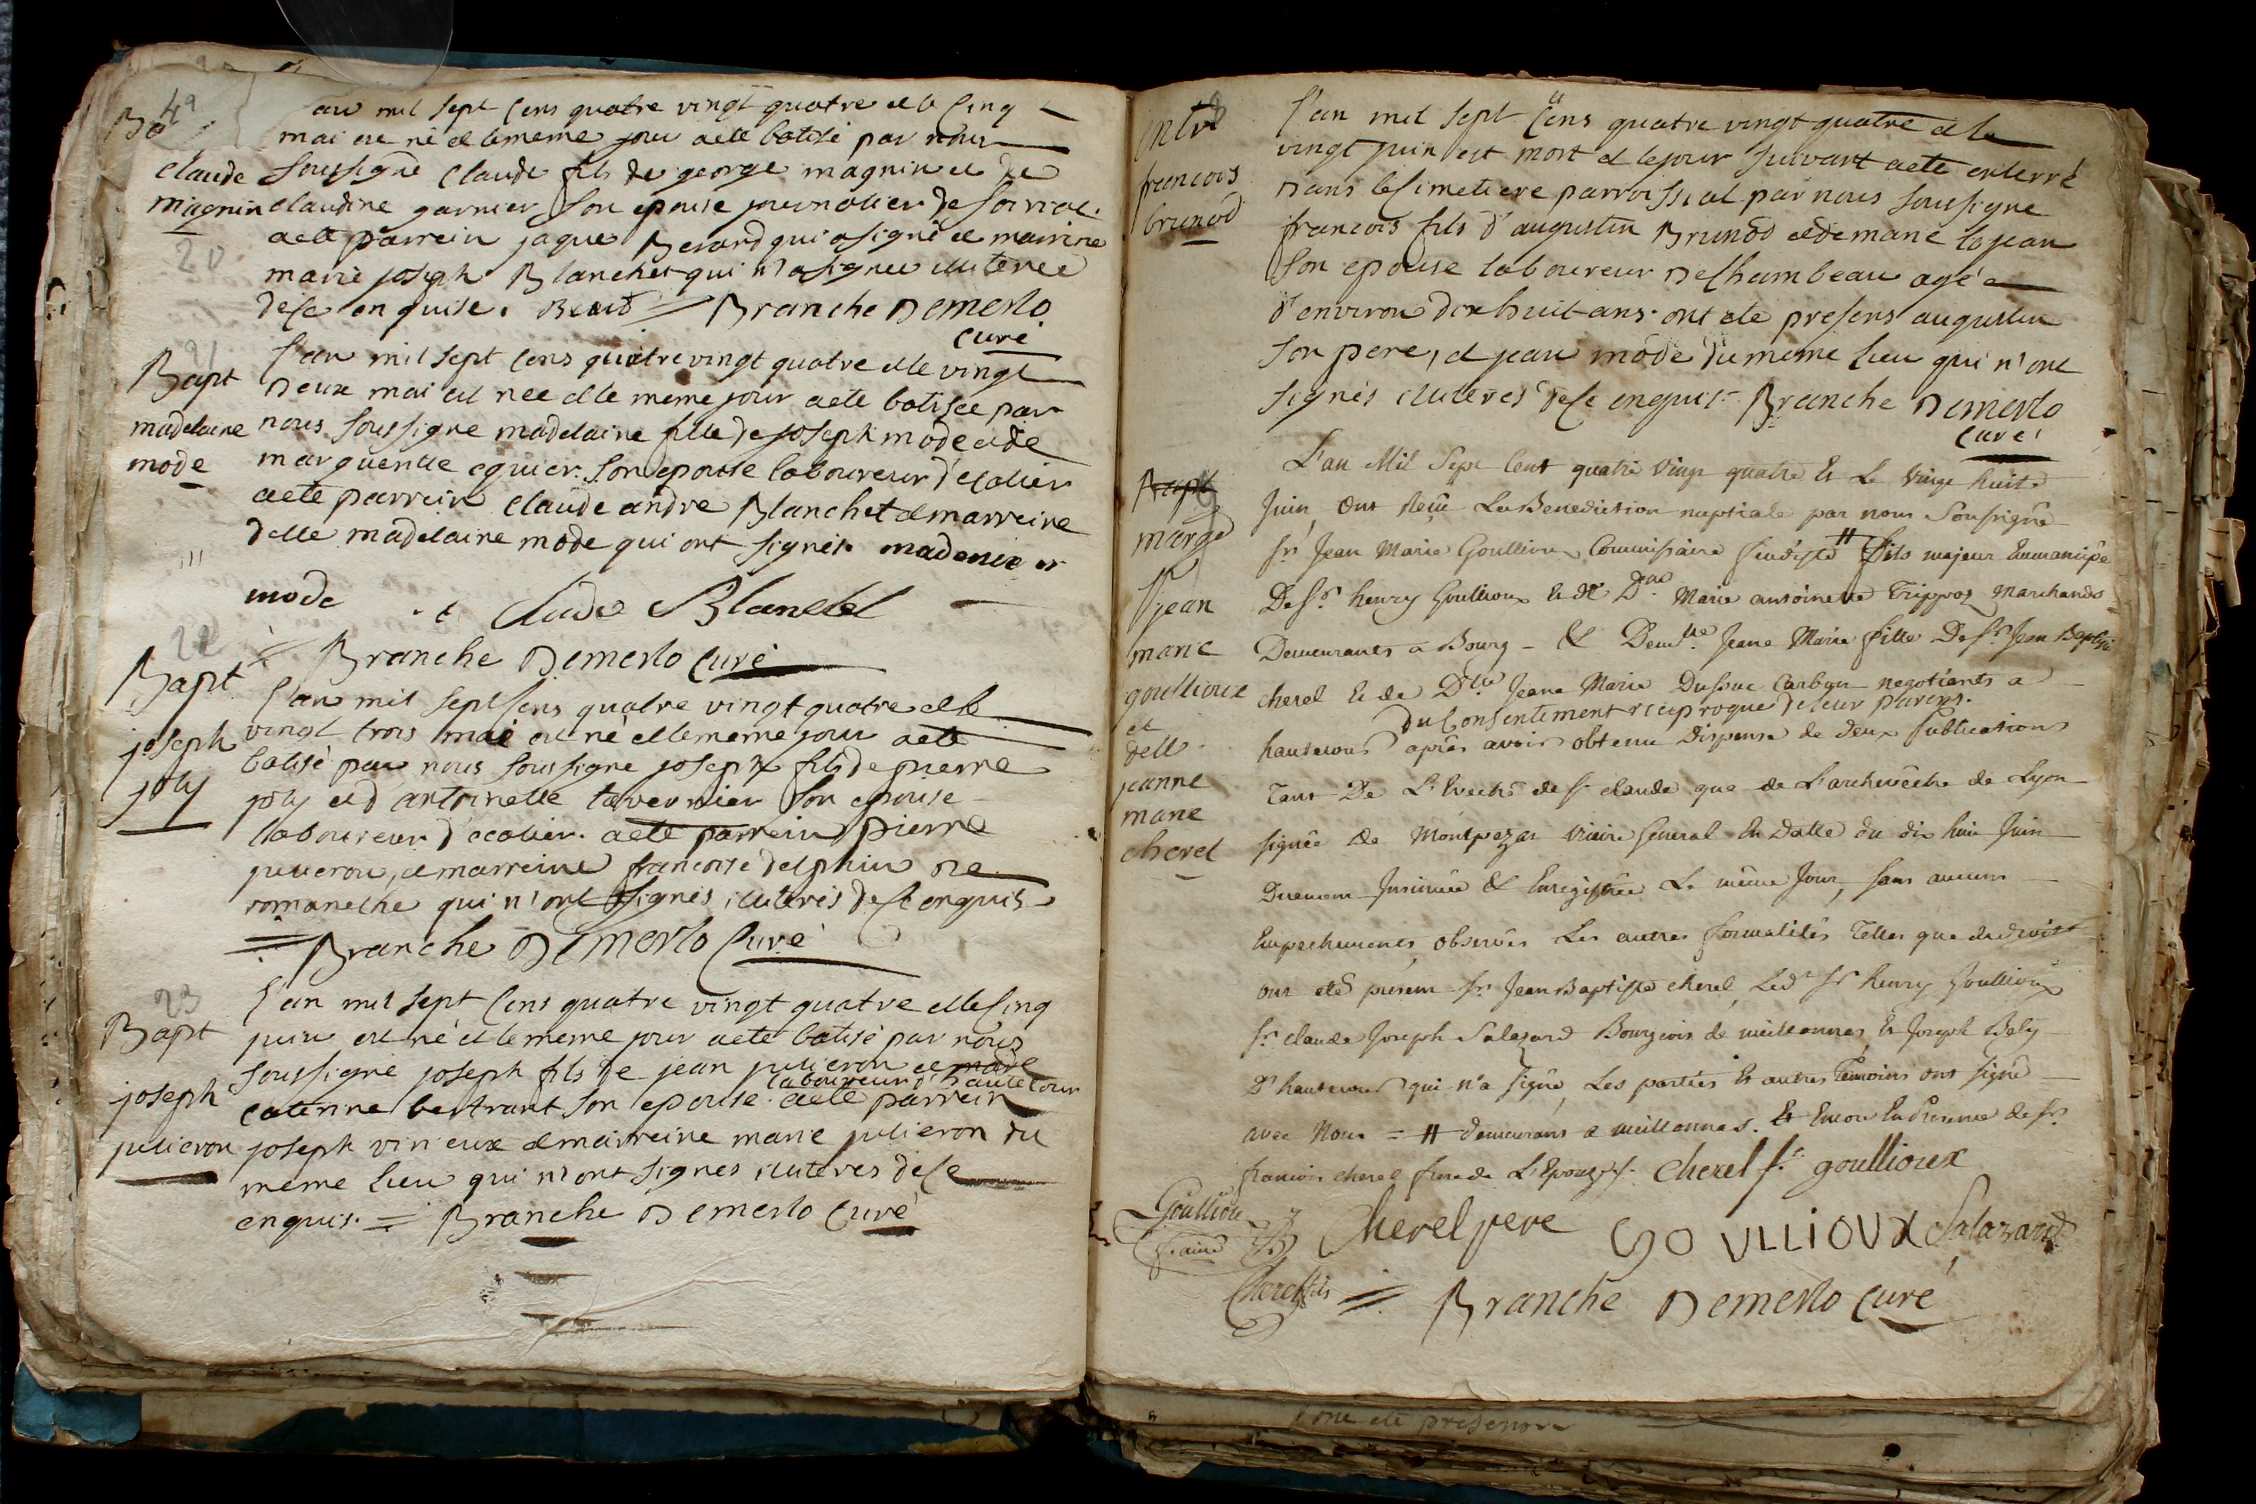 Ba
49
claude
magnin
20
au mil sept cens quatre vingt quatre et le cinq
mai est né et le meme jour a ete batisé par nous
soussigné claude fils de george magnin et de
claudine garnier son epouse journalier de
a ete parrein jaque Berard qui a signé et marrine
marie joseph Blanchet qui n'a signee illiteree
de ce enquise. Berard Branche Demerlo
curé
21
Bapt
madelaine
mode
L'an mil sept cens quatre vingt quatre et le vingt
deux mai est nee et le meme jour a ete batisée par
nous soussigné madelaine fille de joseph mode et de
marguerite eguier son epouse laboureur d'
a ete parrein claude andre Blanchet et marreine
delle madelaine mode qui ont signés. madeneie
mode Claude Blanchet
Branche Demerlo curé
22
Bapt
joseph
joly
L'an mil sept cens quatre vingt quatre et le
vingt trois mai est né et le meme jour a ete
batisé par nous soussigné joseph fils de pierre
joly et d'antoinette tavernier son epouse
laboureur d' a ete parrein pierre
juiieron, et marreine francoise delphin de
romaneche qui n'ont signés illiterés de ce enquis
Branche Demerlo curé
23
Bapt
joseph
julieron
L'an mil sept cens quatre vingt quatre et le cinq
juin est né et le meme jour a ete batisé par nous
soussigné joseph fils de jean julieron et marie
laboureur d'hautecour
caterine bertrant son epouse a ete parrein
joseph virieux et marreine marie julieron du
meme lieu qui n'ont signes illiteres de ce
enquis. = Branche Demerlo curé
francois
brunod
L'an mil sept cens quatre vingt quatre et le
vingt juin est mort et le jour suivant a ete enterré
dans le simetiere parroissial par nous soussigne
francois fils d'augustin Brunod et de marie lojean
son epouse laboureur de chambeau agé
d'environ dix huit ans. ont ete presens augustin
son pere, et jean mode du meme lieu qui n'ont
signés illiteres de ce enquis. Branche Demerlo
curé
Bapt
marge
jean
marie
goullioux
et
delle
jeanne
marie
cherel
L'an Mil Sept Cent quatre vingt quatre et Le vingt huit
juin, ont Reçu La Benediction nuptiale par nous soussigné
Sr. Jean Marie Goullioux Commissaire feudiste # fils majeur Emancipé
De Sr. henry Goullioux et de De. Marie antoinette Marchands
Demeurants a Bourg - & Demlle. Jeane Marie fille De Sr. Jean Baptiste
cherel et de Dlle Jeane Marie negotiants a
du consentement reciproque de leur parens.
hautecour après avoir obtenu dispense de deux publications
tant De L'Eveché de St. claude que de L'archevêché de Lyon
signée de Montpezat vicaire General en datte du dix huit Juin
Duement Insinuée & Enregistrée Le même Jour, sans aucuns
Empechements, observés Les autres formalités telles que de droit
ont eté présent Sr. Jean Baptiste cherel, Led. Sr. henry Goullioux
Sr. claude Joseph Salazard Bourgeois de meillonnas, et Joseph Bely
D'hautecour qui n'a signé, Les parties et autres Temoins ont signé
avec Nous = # demeurant a meillonnas. et Encor En presence de Sr.
francois cherel frere de L'Epouse. cherel fr. goullioux
Goullioux
f. ainé
Cherel pere GOULLIOUX Salazard
Cherel fils
= Branche Demerlo curé
ont ete presens